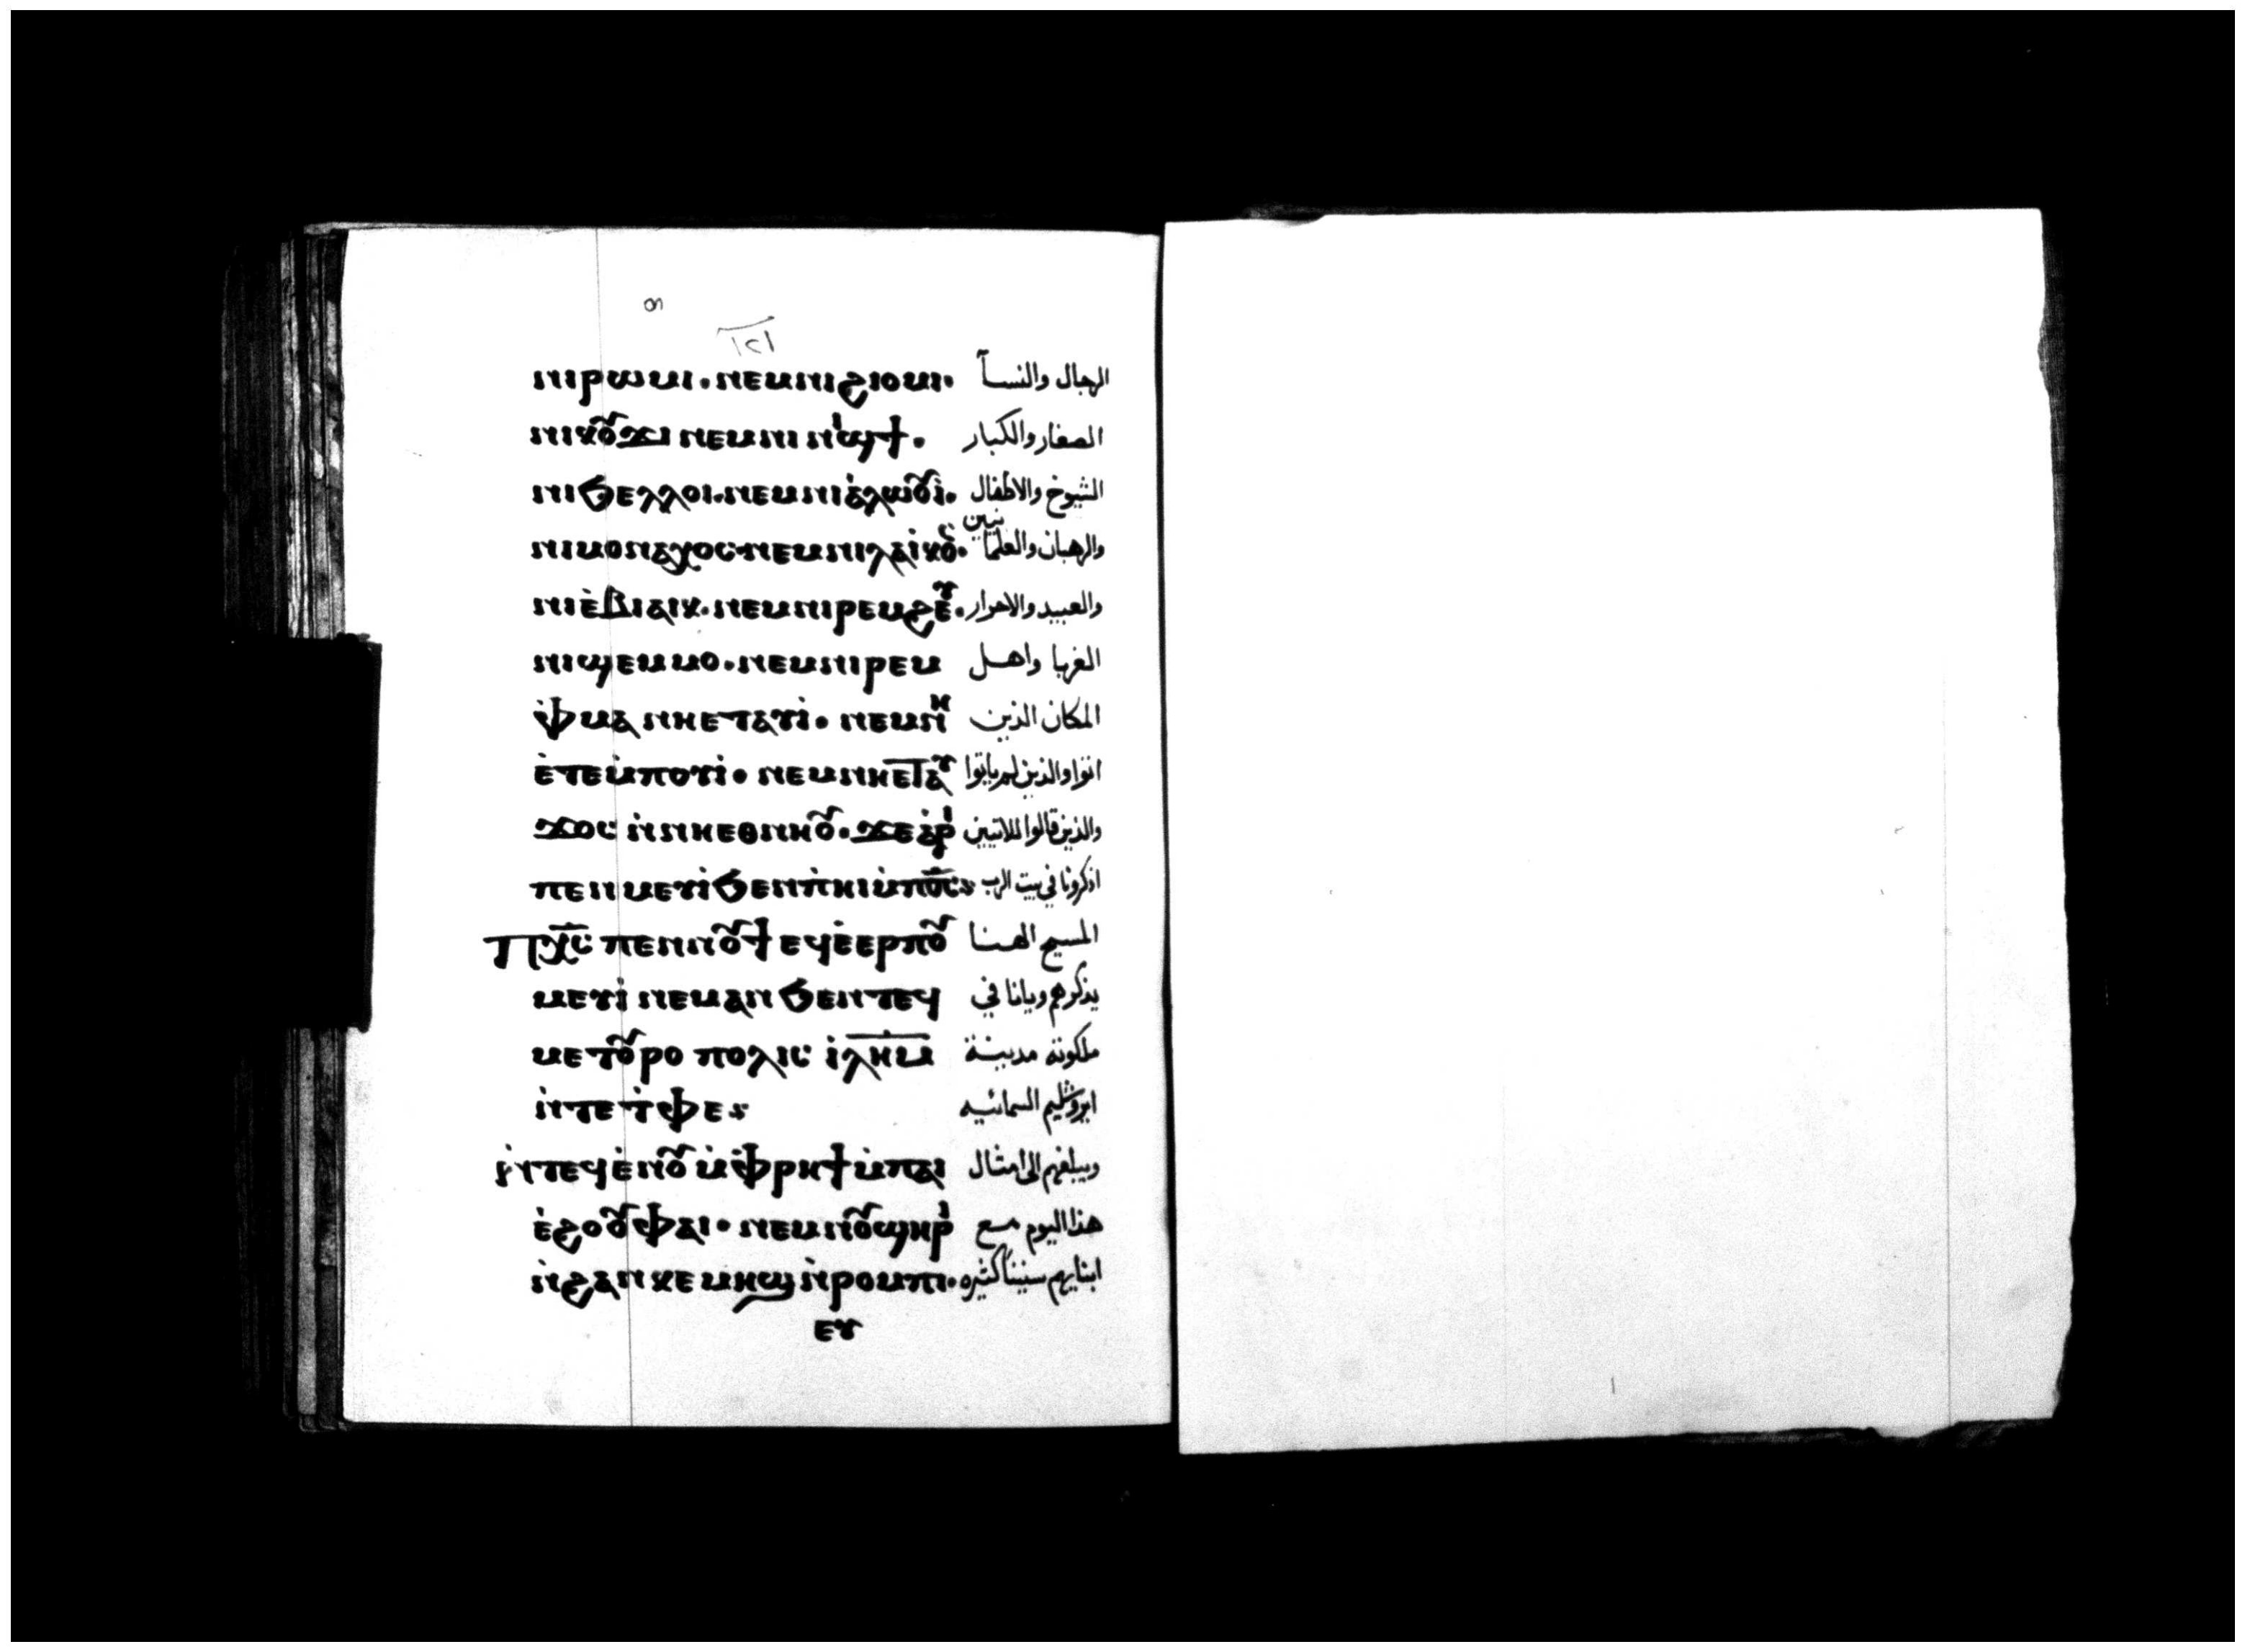 ١٢١
ⲛⲓⲣⲱⲙⲓ. ⲛⲉⲙⲛⲓϩⲓⲟⲙⲓ. الرجال والنسآ
ⲛⲓⲕⲟⲩϫⲓ ⲛⲉⲙⲛⲓ ⲛⲓϣϯ. الصغار والكبار
ⲛⲓϧⲉⲗⲗⲟⲓ. ⲛⲉⲙⲛⲓⲁ̀ⲗⲱⲟⲩⲓ̀. الشيوخ والاطفال
ⲛⲓⲙⲟⲛⲁⲭⲟⲥ ⲛⲉⲙⲛⲓⲗⲁⲓ̀ⲕⲟⲥ. والرهبان والعلمانيين
ⲛⲓⲉ̀ⲃⲓⲁⲓⲕ. ⲛⲉⲙⲛⲓⲣⲉⲙϩⲉⲩ. والعبيد والاحرار
ⲛⲓϣⲉⲙⲙⲟ. ⲛⲉⲙⲛⲓⲣⲉⲙ الغربا واهل
ⲫ̀ⲙⲁ ⲛⲏⲉⲧⲁⲩⲓ̀. ⲛⲉⲙⲛⲏ المكان الذين
ⲉ̀ⲧⲉⲙ̀ⲡⲟⲩⲓ̀. ⲛⲉⲙⲛⲏⲉⲧⲁⲩ اتوا والذين لم ياتوا
ϫⲟⲥ ⲛ̀ⲛⲏⲉⲑⲛⲏⲟⲩ. ϫⲉⲁ̀ⲣⲓ والذين قالوا للاتيين
ⲡⲉⲛ ⲙⲉⲩⲓ̀ ϧⲉⲛⲡ̀ⲏⲓ ⲙ̀ⲡⲟ̅ⲥ̅ اذكرونا في بيت الرب
ⲡⲭ̅ⲥ̅ ⲡⲉⲛⲛⲟⲩϯ ⲉϥⲉ̀ⲉⲣⲡⲟⲩ المسيح الهنا
ⲙⲉⲩⲓ̀ ⲛⲉⲙⲁⲛ ϧⲉⲛⲧⲉϥ يذكرهم ويانا في
ⲙⲉⲧⲟⲩⲣⲟ ⲡⲟⲗⲓⲥ ⲓ̀ⲗ̅ⲏ̅ⲙ̅ ملكوته مدينة
ⲛ̀ⲧⲉ ⲧ̀ⲫⲉ ايروشليم السمائيه
ⲛ̀ⲧⲉϥⲉ̀ⲛⲟⲩ ⲙ̀ⲫ̀ⲣⲏϯ ⲙ̀ⲡⲁⲓ ويبلغهم الى امثال
ⲉ̀ϩⲟⲟⲩ ⲫⲁⲓ. ⲛⲉⲙⲛⲟⲩϣⲏⲣⲓ هذا اليوم مع
ⲛ̀ϩⲁⲛ ⲕⲉ ⲙⲏϣ ⲛ̀ⲣⲟⲙⲡⲓ. ابنايهم سنينا كثيره
ⲉⲩ